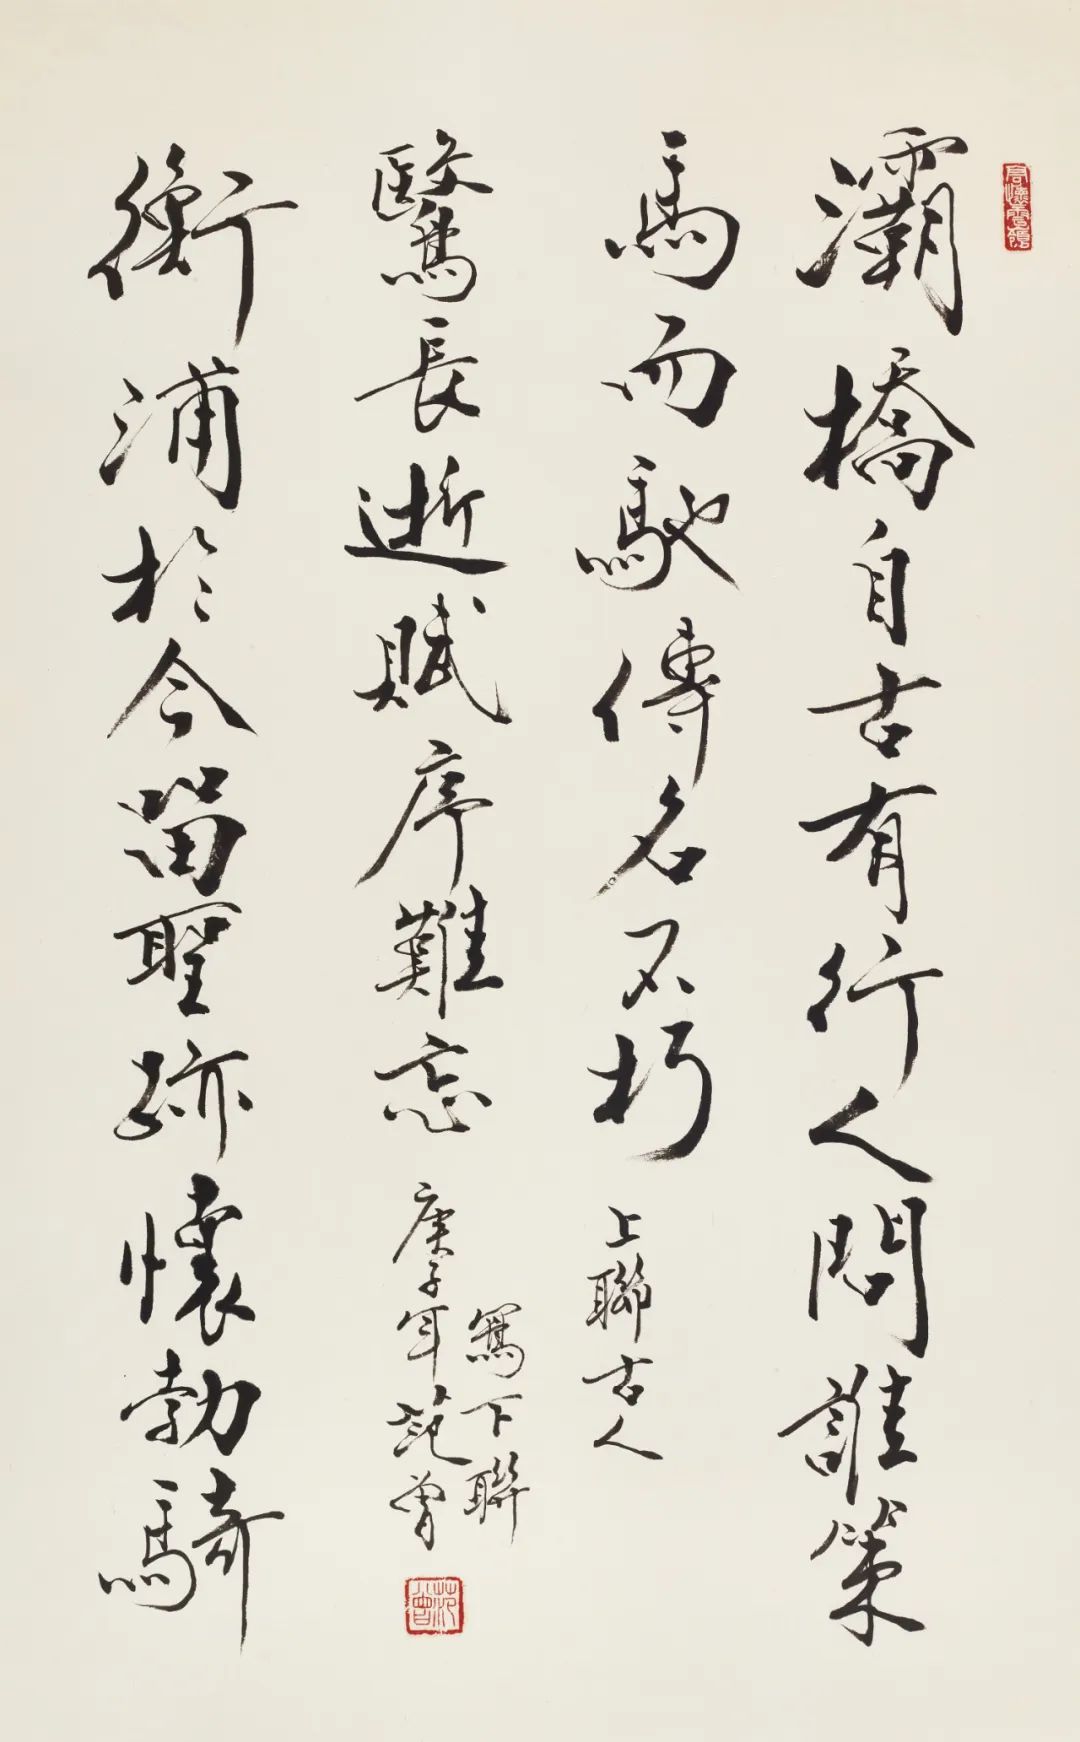 灞橋自古有行人問誰策
馬而馳傳名不朽
上聯古人
衡浦於今留聖跡懷勃騎
鷖長逝賦序難忘
庚子年范曾
寫下聯
范曾